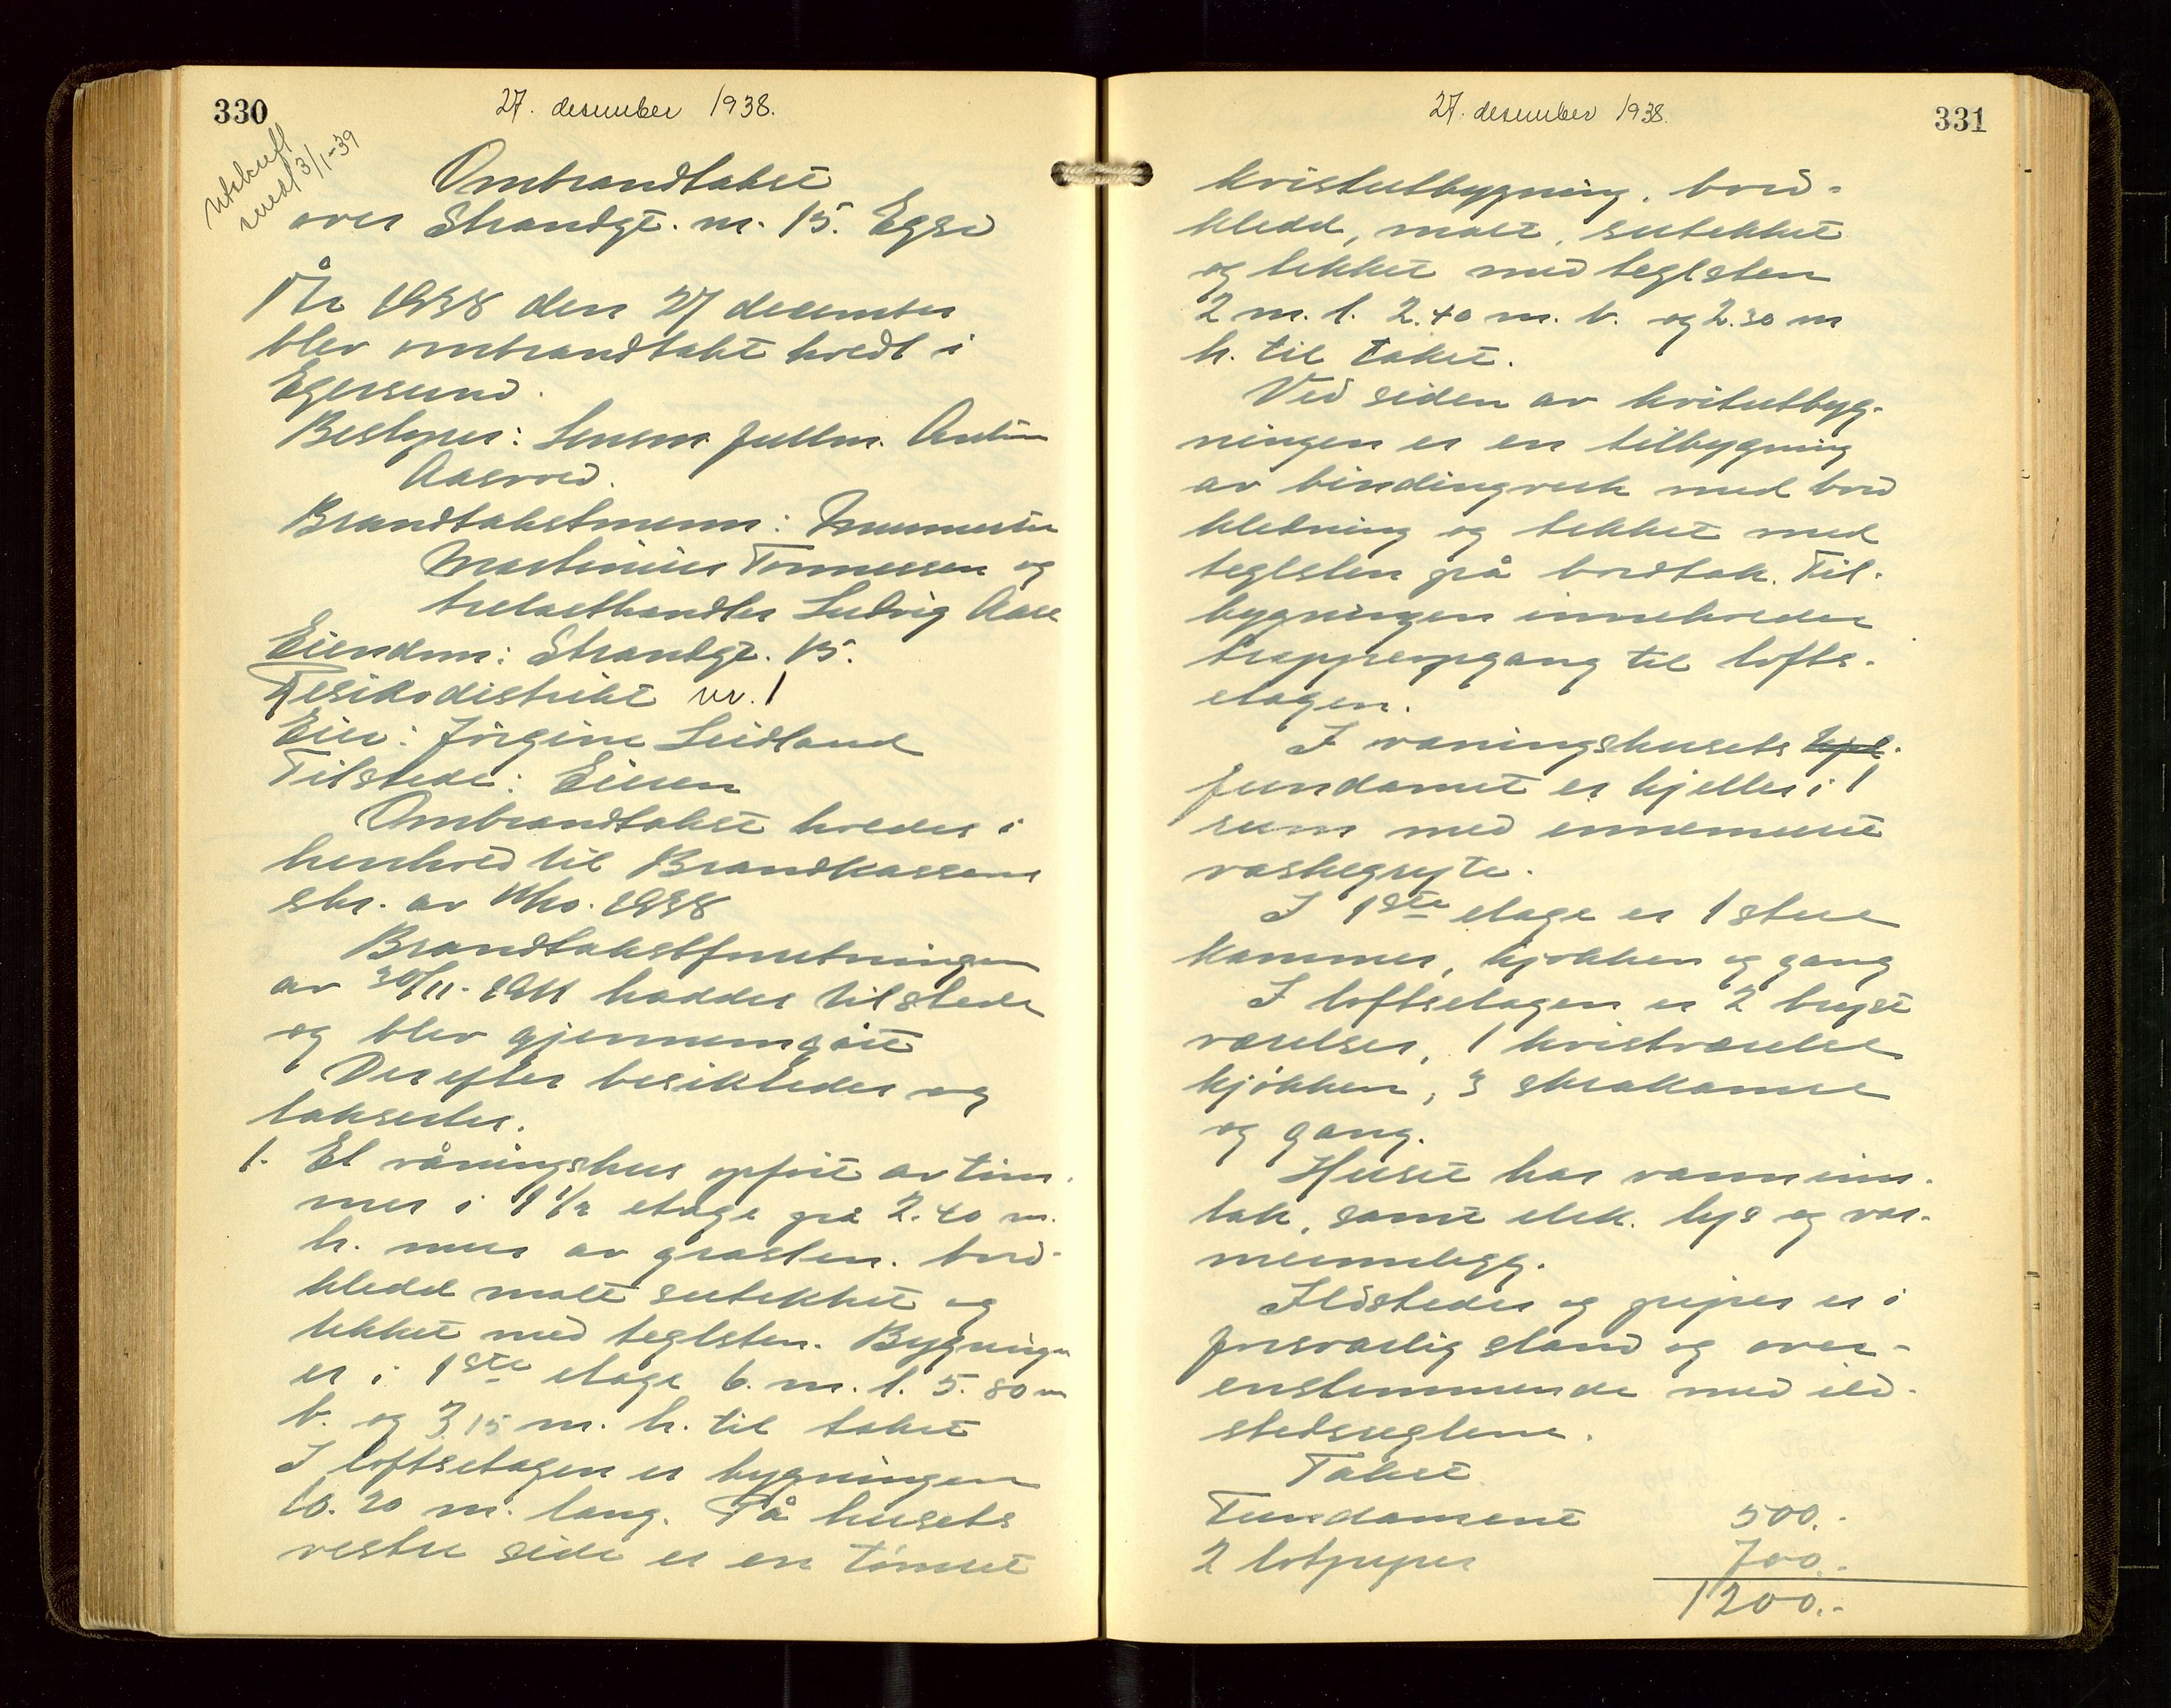 330
27. desember 1938.
Utskrift
send 3/1-39
Ombrandtakst
over Strandgt. nr. 15. Egsd
År 1938 den 27 december
blev ombrandtakst holdt i
Egersund.
Bestyrer: Lensm. fullm. Anton
Aasvold.
Brandtakstmenn: Murmester
Martinius Tønnessen og
trelasthandler Ludvig Aase
Eiendom: Strandgt. 15.
Risikodistrikt nr. 1
Eier: Jørgine Leidland
Tilstede: Eieren
Ombrandtakst holdes i
henhold til Brandkassens
skr. av 11/10. 1938
Brandtakstforretningen
av 30/11. 1911 haddes tilstede
og blev gjennemgått
Derefter besiktedes og
taksertes.
1. Et våningshus opført av tøm-
mer i 1 1/2 etage på 2.40 m.
h. mur av gråsten. bord-
kledd malt sutekket og
tekket med teglsten. Bygningen
er i 1ste etage 6. m. l. 5.80 m
b. og 3.15 m. h. til taket
I loftsetagen er bygningen
10.20 m. lang. På husets
vestre side er en tømret
27. desember 1938.
331
kvistutbygning, bord-
kledd, malt, sutekket
og tekket med teglsten
2 m. l. 2.40 m. b. og 2.30 m
h. til taket.
Ved siden av kvistutbyg-
ningen er en tilbygning
av bindingverk med bord
kledning og tekket med
teglsten på bordtak. Til-
bygningen inneholder
trappeopgang til lofts-
etagen.
I våningshusets
fundament er kjeller i 1
rum med innemuret
vaskegryte.
I 1ste etage er 1 stue
kammer, kjøkken og gang
I loftsetagen er 2 kvist
værelser, 1 kvistværelse
kjøkken, 3 skråkamre
og gang.
Huset har vanninn-
tak, samt elek. lys og var-
meinnlegg.
Ildsteder og piper er i
forsvarlig stand og over-
enstemmende med ild-
stedsreglene.
Takst
Fundament 500.-
2 lotpiper 700.-
1200.-